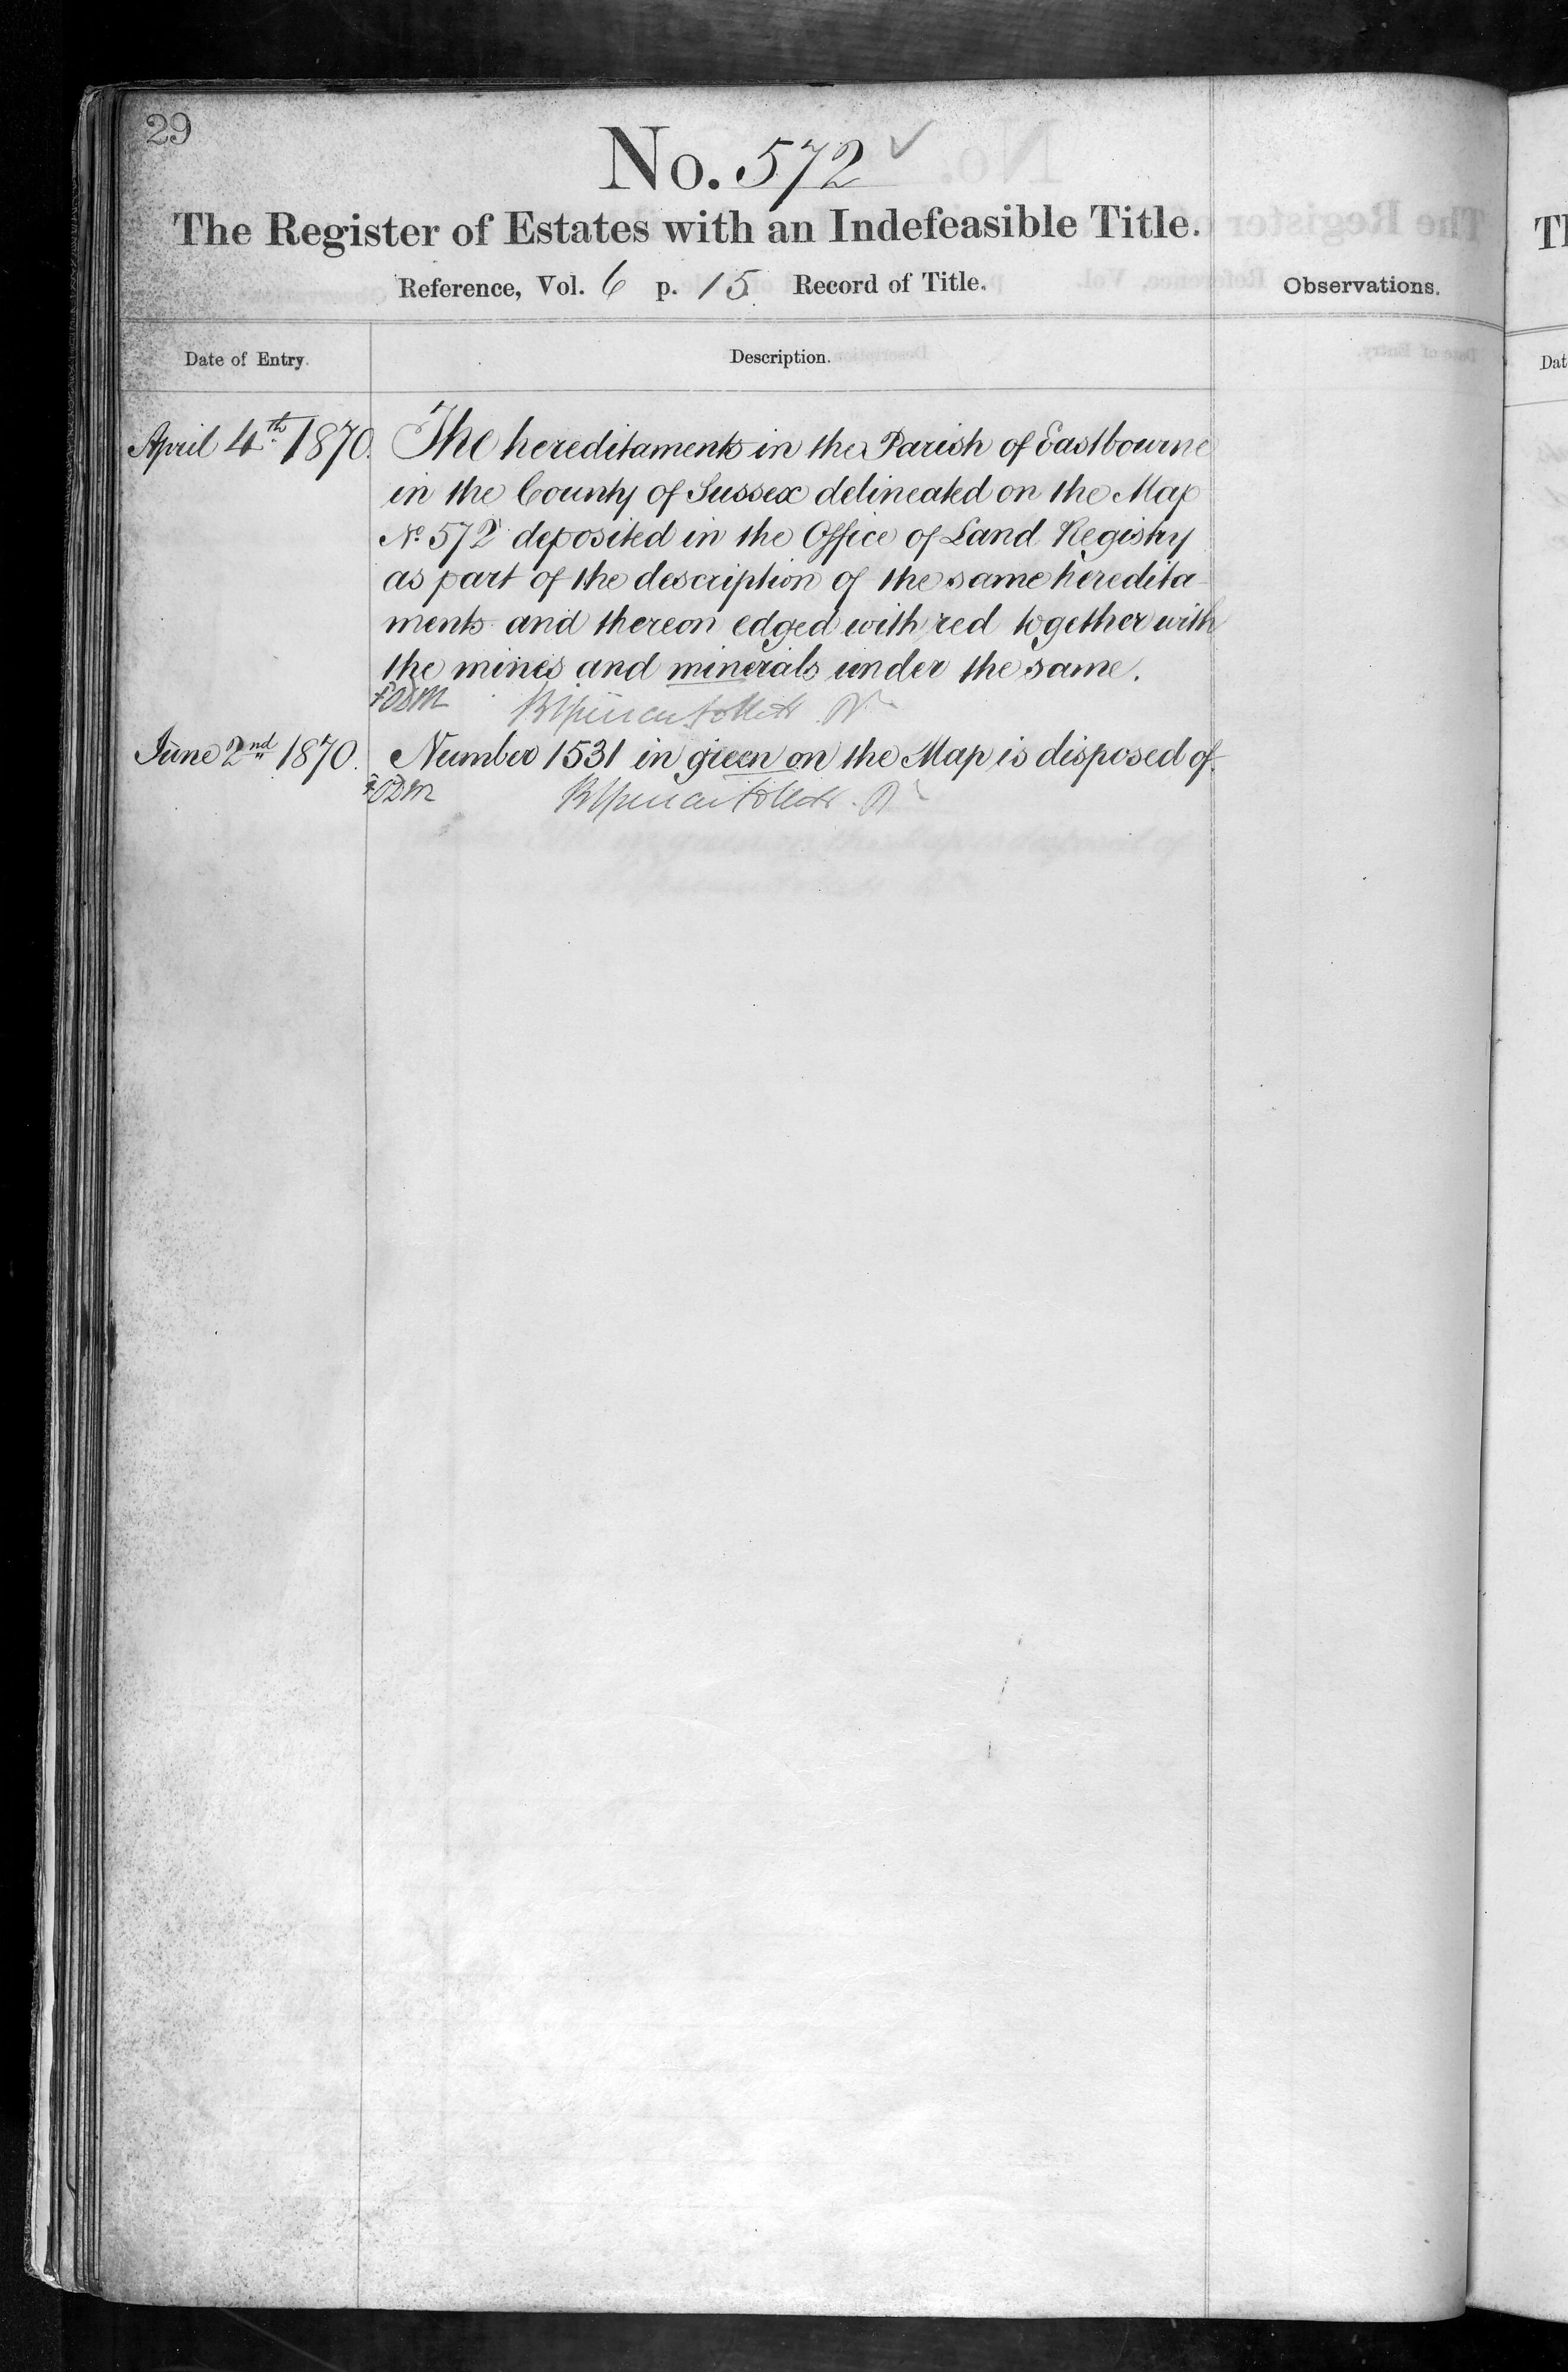 29
No. 572 ✓
The Register of Estates with an Indefeasible Title.
Reference, Vol. 6 p. 15 Record of Title.
Observations.
Date of Entry.
Description.
April 4th 1870.
The hereditaments in the Parish of Eastbourne
in the County of Sussex delineated on the Map
No. 572 deposited in the Office of Land Registry
as part of the description of the same heredita-
ments and thereon edged with red together with
the mines and minerals under the same.
June 2nd 1870.
Number 1531 in green on the Map is disposed of.
Th
Dat